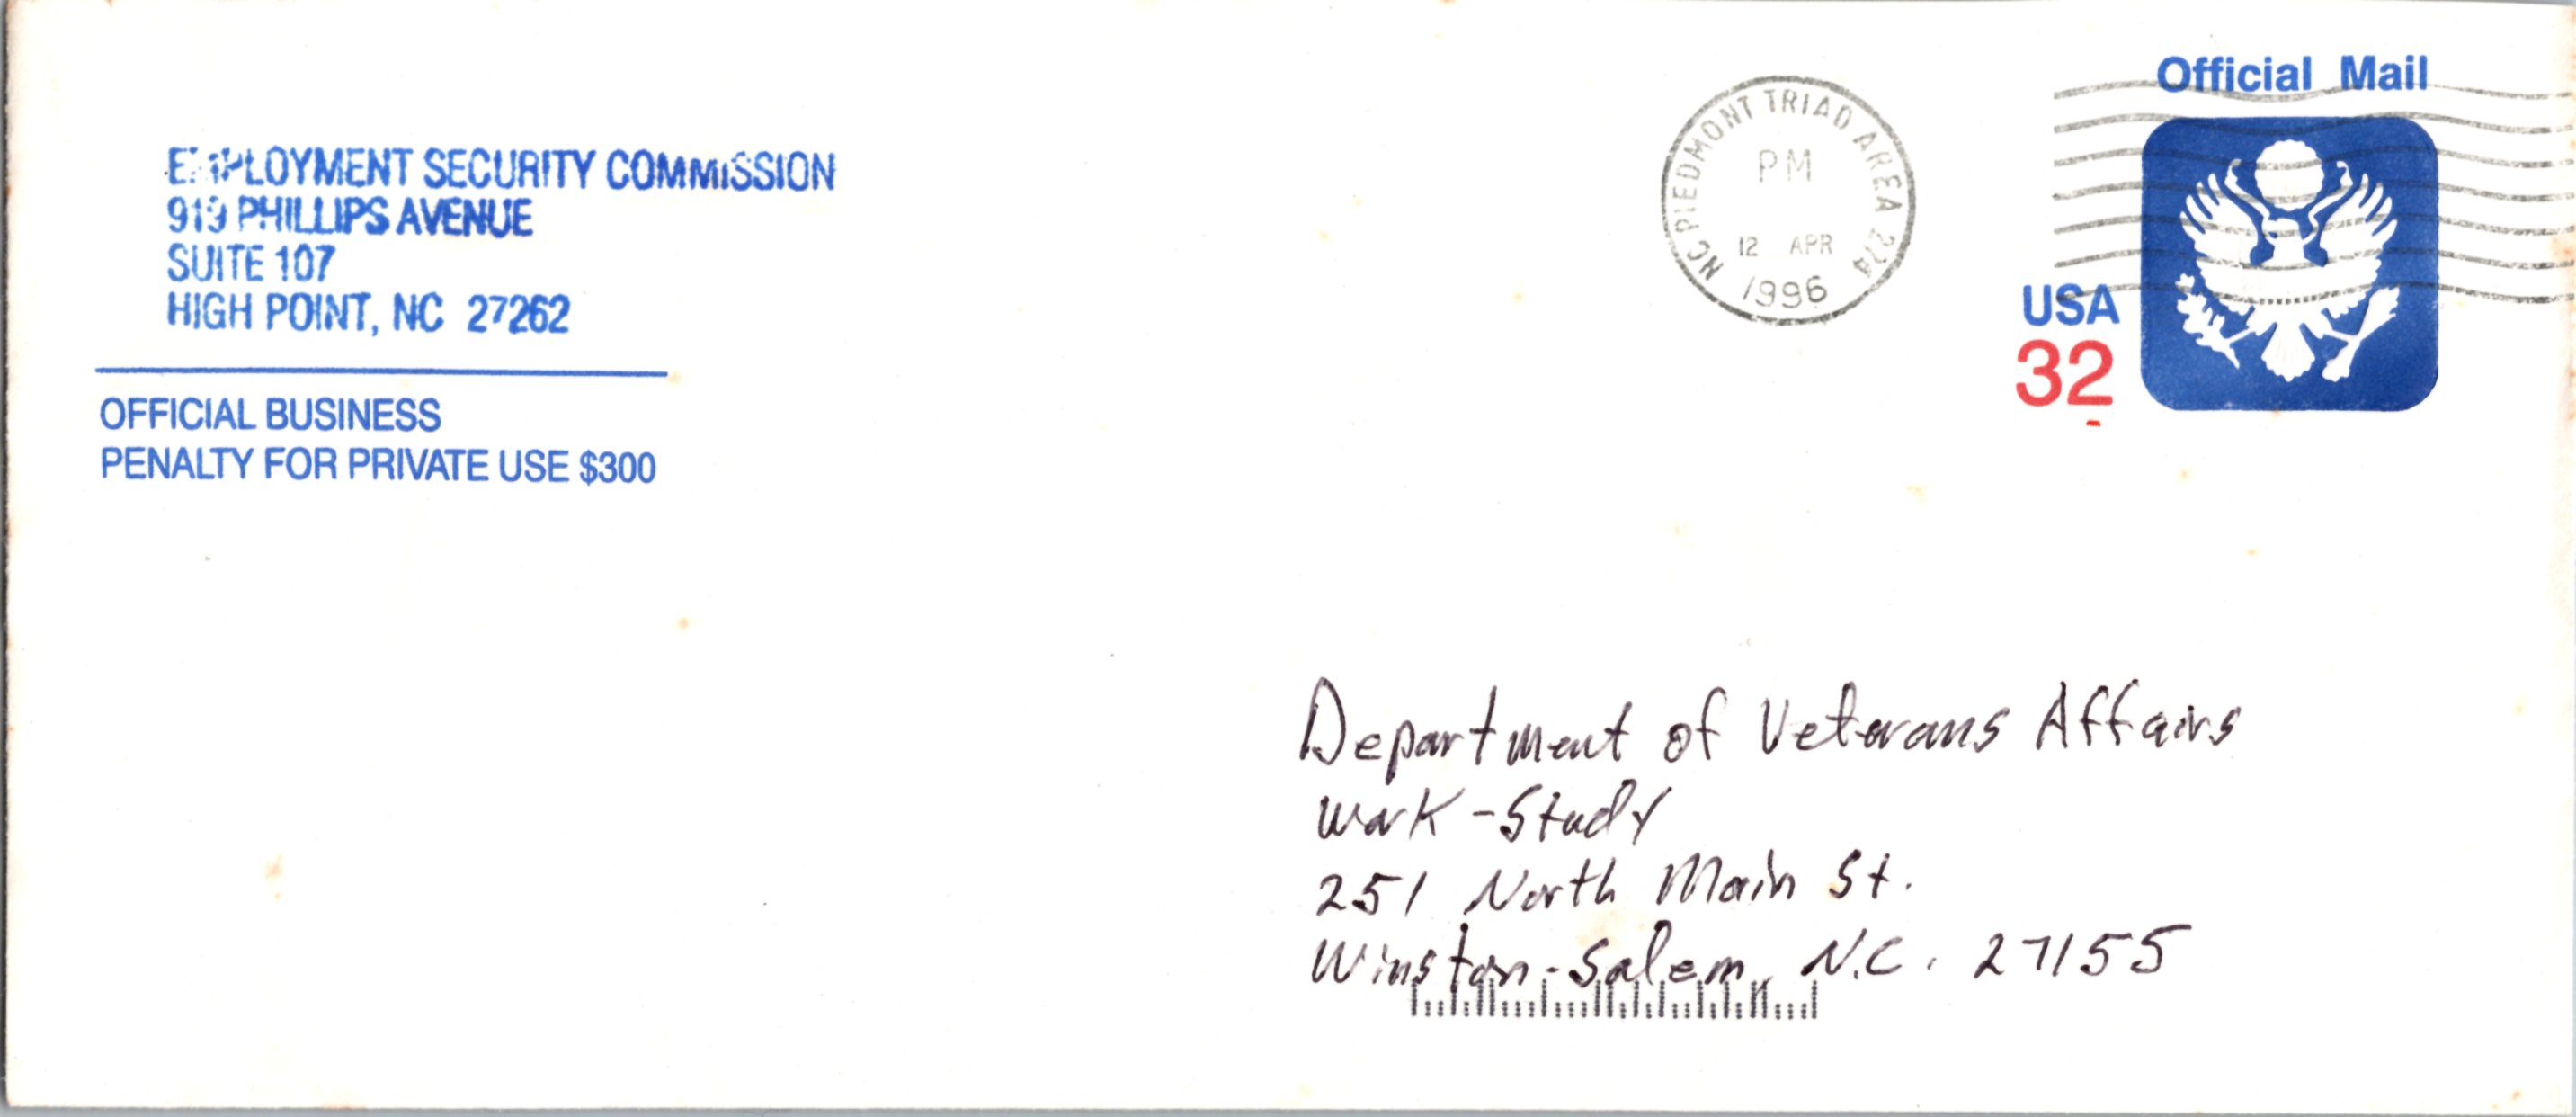 EMPLOYMENT SECURITY COMMISSION
919 PHILLIPS AVENUE
SUITE 107
HIGH POINT, NC 27262
OFFICIAL BUSINESS
PENALTY FOR PRIVATE USE $300
NC PIEDMONT TRIAD AREA
PM
12 APR
1996
Official Mail
USA
32
Department of Veterans Affairs
Work-Study
251 North Main St.
Winston-Salem, N.C. 27155